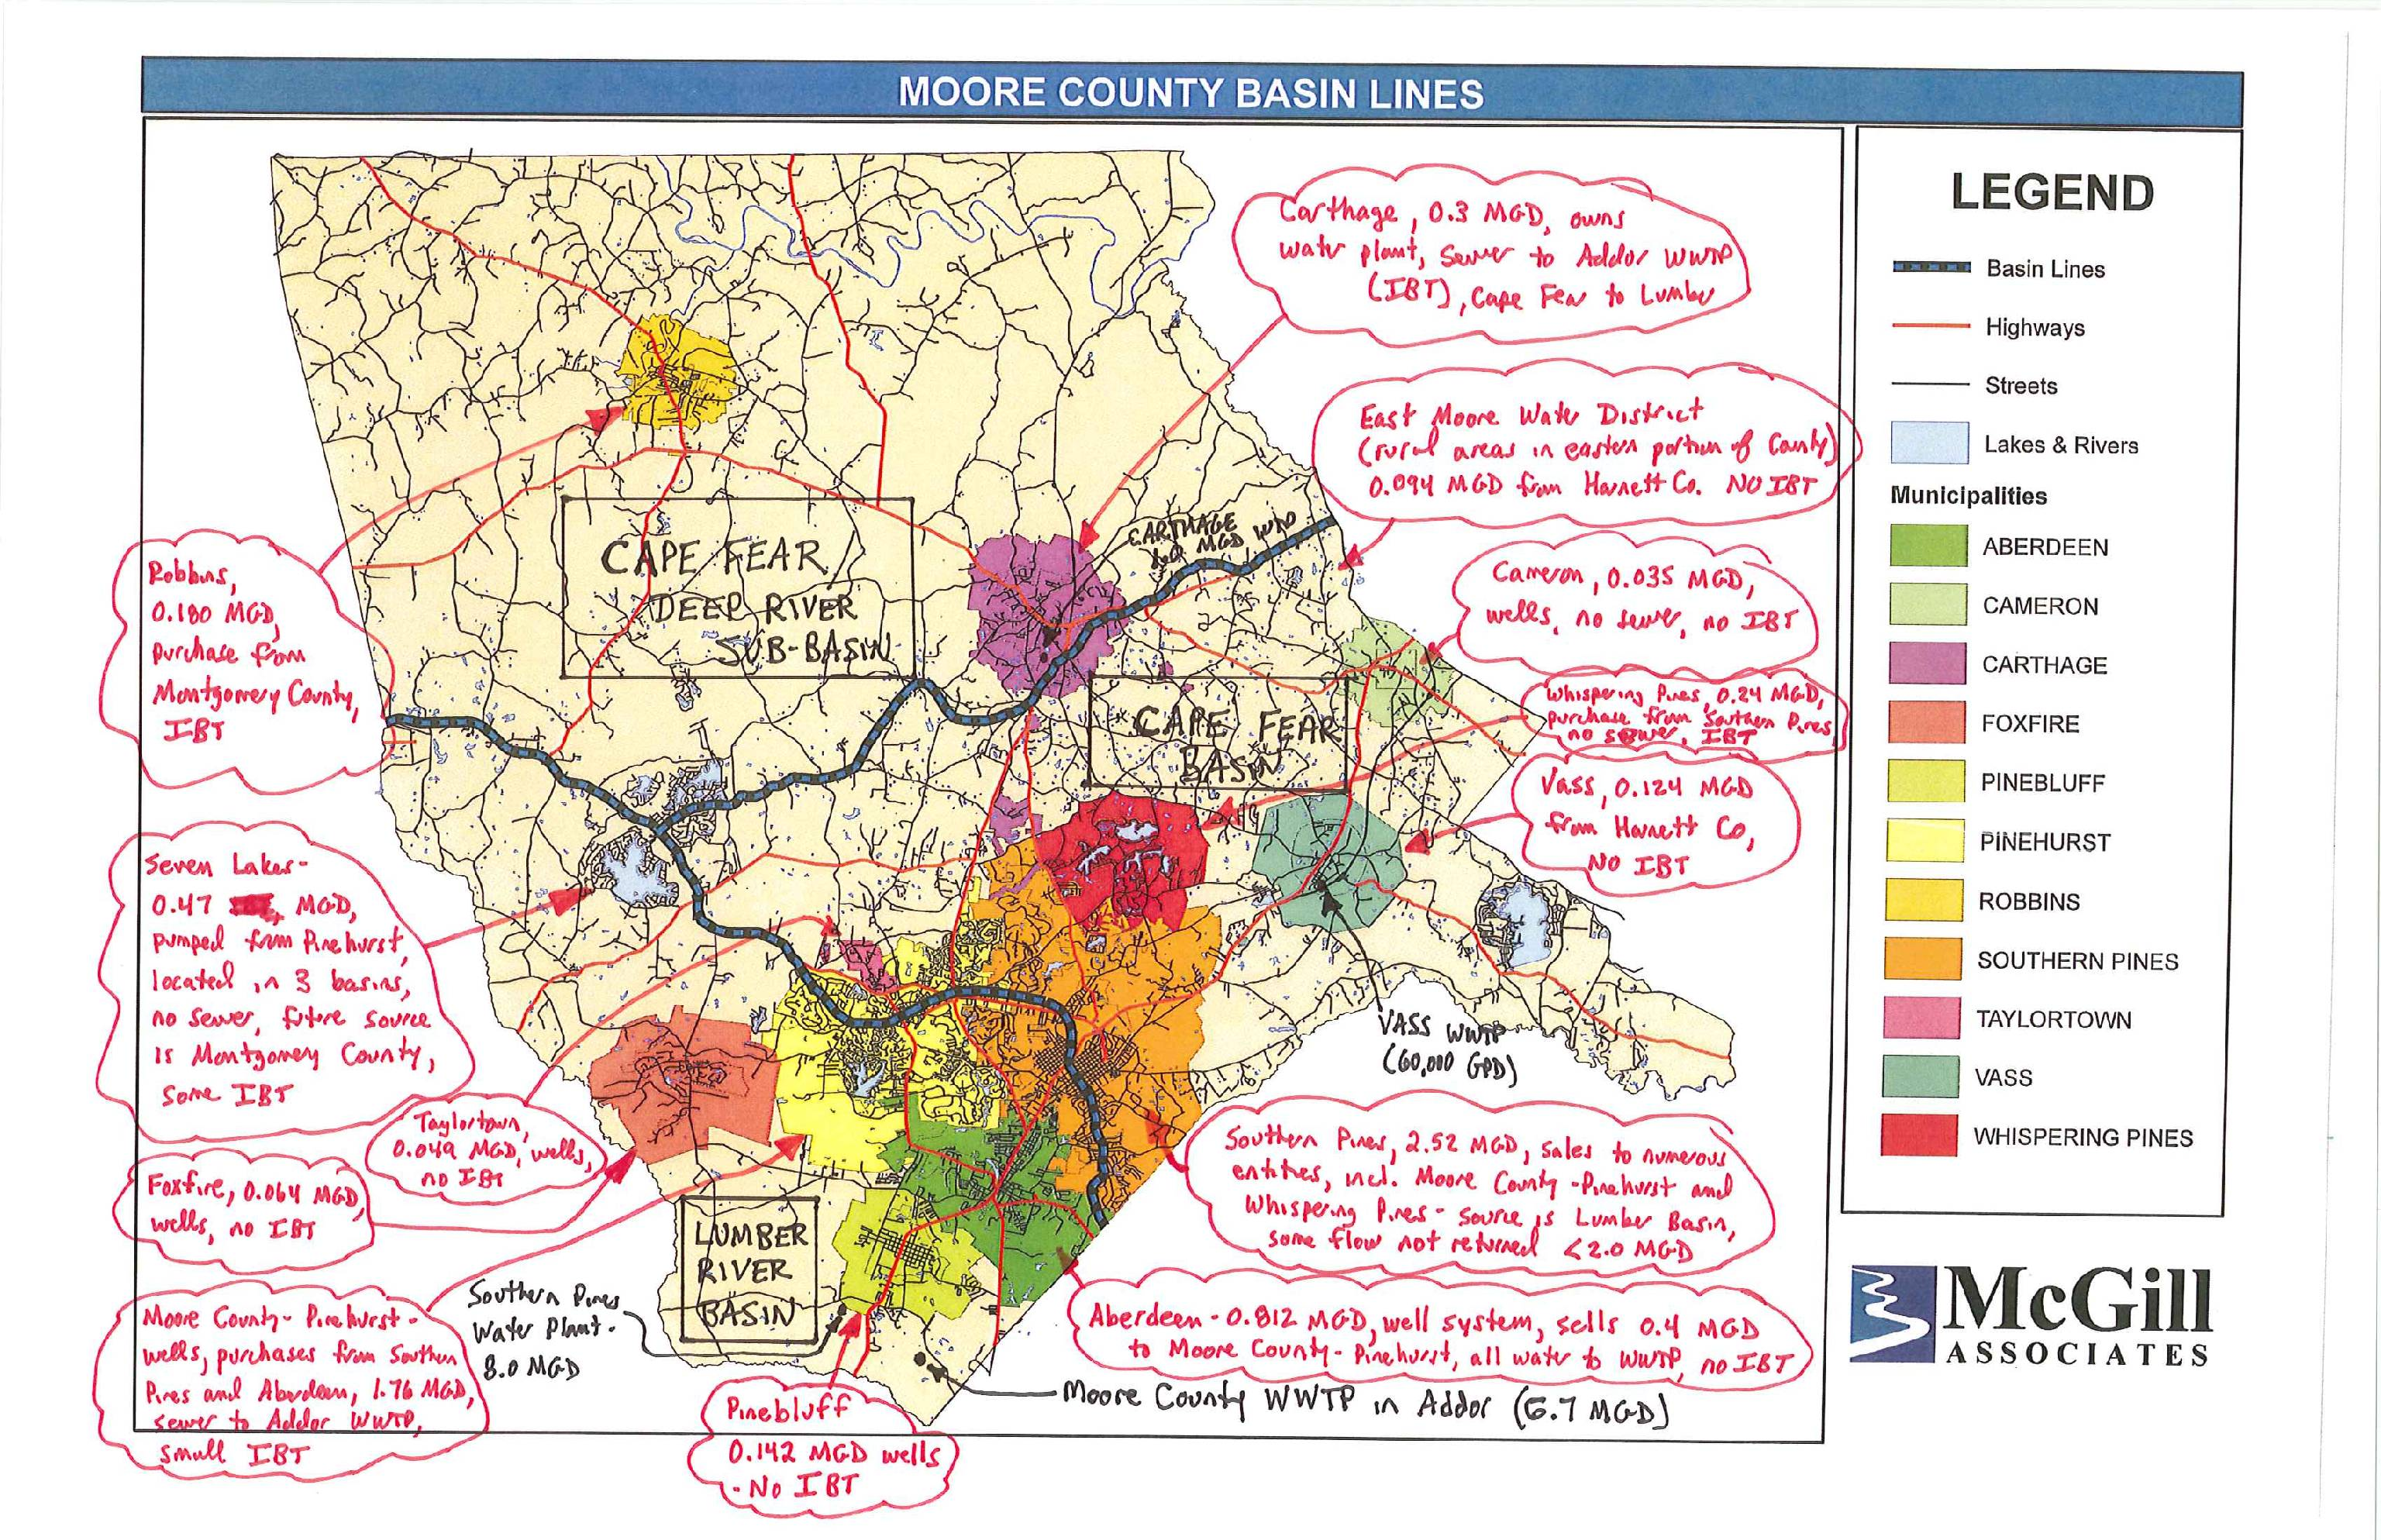 MOORE COUNTY BASIN LINES
Carthage, 0.3 MGD, owns
water plant, sewer to Addor WWTP
(IBT), Cape Fear to Lumber
East Moore Water District
(rural areas in eastern portion of County)
0.094 MGD from Harnett Co. NO IBT
CARTHAGE
1.0 MGD WTP
CAPE FEAR
DEEP RIVER
SUB-BASIN
Cameron, 0.035 MGD,
wells, no sewer, no IBT
Robbins,
0.180 MGD,
purchase from
Montgomery County,
IBT
Whispering Pines, 0.24 MGD,
purchase from Southern Pines,
no sewer, IBT
CAPE FEAR
BASIN
Vass, 0.124 MGD
from Harnett Co,
NO IBT
Seven Lakes-
0.47 MGD,
pumped from Pinehurst,
located in 3 basins,
no sewer, future source
is Montgomery County,
some IBT
VASS WWTP
(60,000 GPD)
Taylortown,
0.049 MGD, wells,
no IBT
Foxfire, 0.064 MGD,
wells, no IBT
Southern Pines, 2.52 MGD, sales to numerous
entities, incl. Moore County-Pinehurst and
Whispering Pines - source is Lumber Basin,
some flow not returned <2.0 MGD
LUMBER
RIVER
BASIN
Southern Pines
Water Plant -
8.0 MGD
Moore County-Pinehurst-
wells, purchases from Southern
Pines and Aberdeen, 1.76 MGD,
sewer to Addor WWTP,
small IBT
Aberdeen - 0.812 MGD, well system, sells 0.4 MGD
to Moore County-Pinehurst, all water to WWTP, no IBT
Moore County WWTP in Addor (6.7 MGD)
Pinebluff
0.142 MGD wells
- No IBT
LEGEND
Basin Lines
Highways
Streets
Lakes & Rivers
Municipalities
ABERDEEN
CAMERON
CARTHAGE
FOXFIRE
PINEBLUFF
PINEHURST
ROBBINS
SOUTHERN PINES
TAYLORTOWN
VASS
WHISPERING PINES
McGill
ASSOCIATES